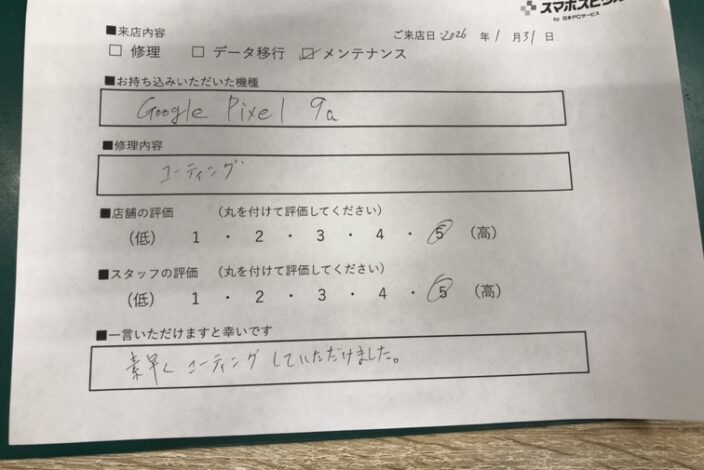 スマホスピタル
by 日本PCサービス
■来店内容
ご来店日 2026 年 1 月 31 日
□ 修理 □ データ移行 ☑ メンテナンス
■お持ち込みいただいた機種
Google Pixel 9a
■修理内容
コーティング
■店舗の評価 （丸を付けて評価してください）
（低） 1 ・ 2 ・ 3 ・ 4 ・ 5 （高）
■スタッフの評価 （丸を付けて評価してください）
（低） 1 ・ 2 ・ 3 ・ 4 ・ 5 （高）
■一言いただけますと幸いです
素早くコーティングしていただけました。